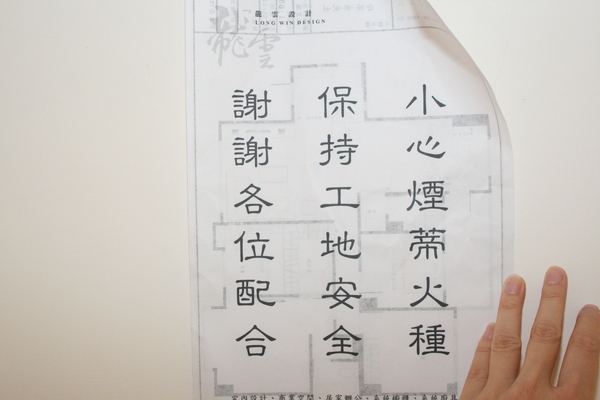 龍雲設計
LONG WIN DESIGN
龍雲
小心煙蒂火種
保持工地安全
謝謝各位配合
室內設計、商業空間、居家辦公、系統櫥櫃、系統廚具